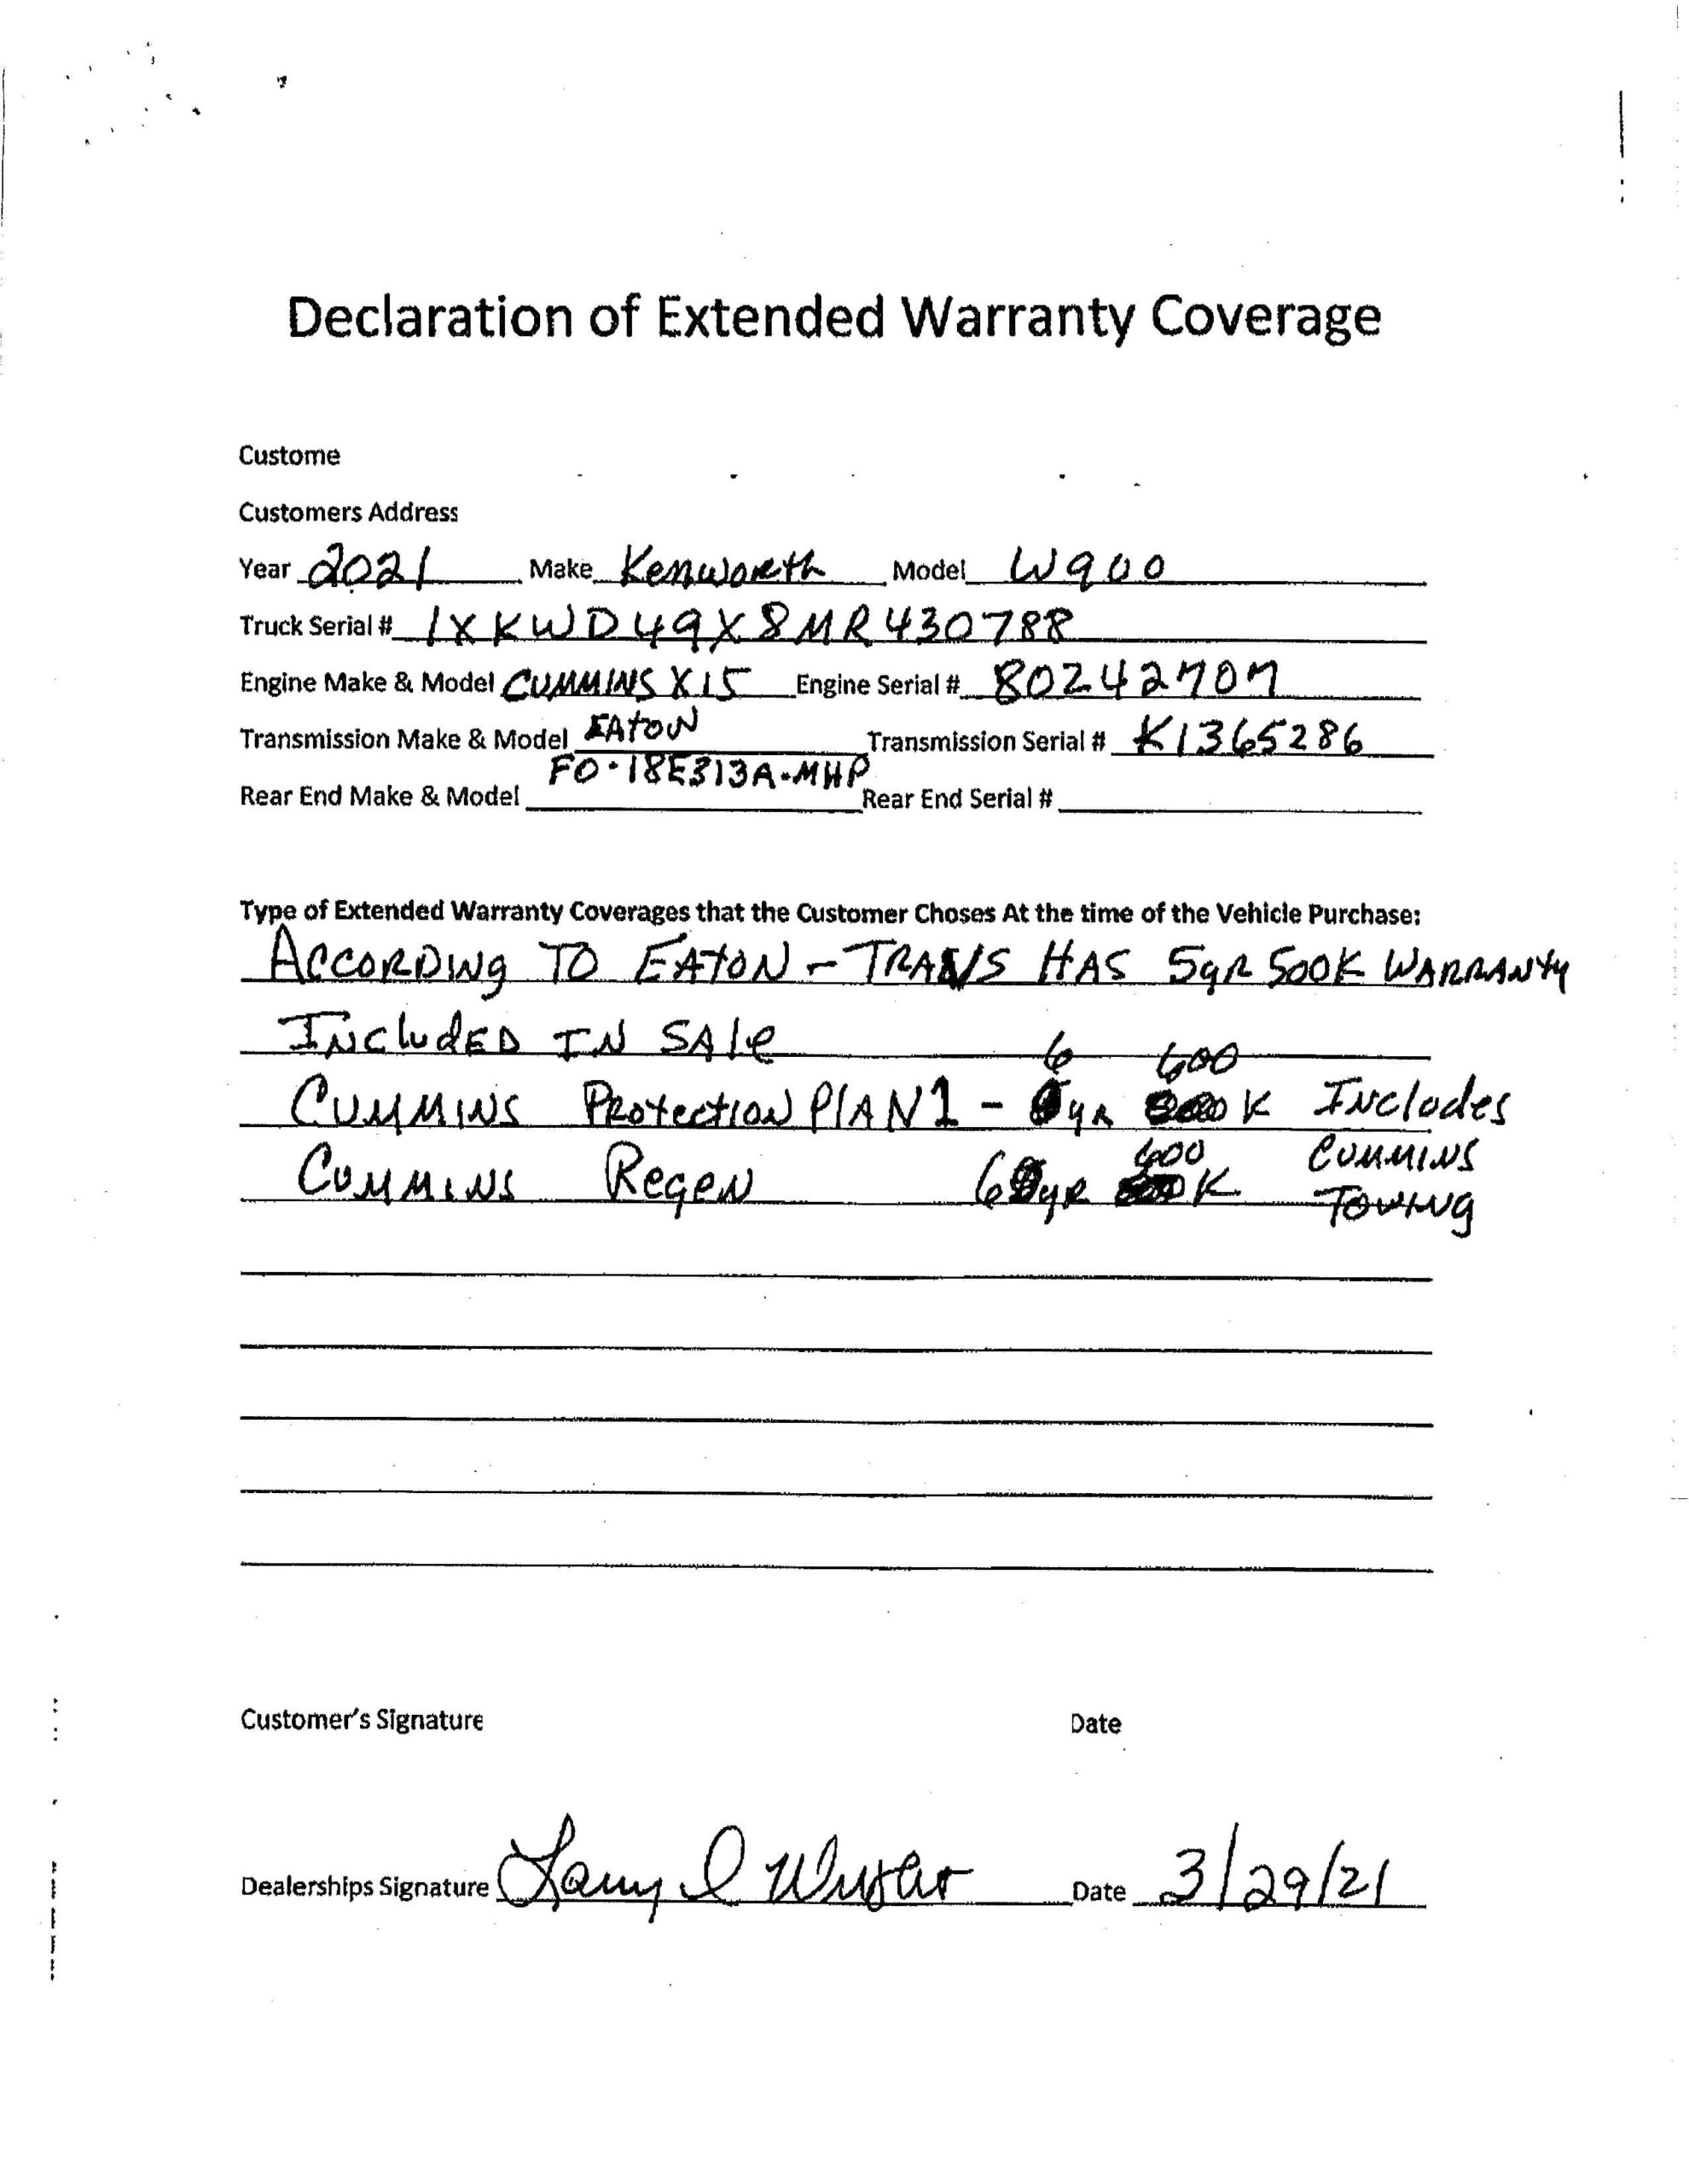 Declaration of Extended Warranty Coverage
Custome
Customers Address
Year 2021 Make Kenworth Model W900
Truck Serial # 1XKWD49X8MR430788
Engine Make & Model CUMMINS X15 Engine Serial # 80242707
Transmission Make & Model EATON Transmission Serial # K1365286
FO-18E313A-MHP
Rear End Make & Model Rear End Serial #
Type of Extended Warranty Coverages that the Customer Choses At the time of the Vehicle Purchase:
ACCORDING TO EATON - TRANS HAS 5yR 500K WARRANTY
INCludED IN SAle
6 600
CUMMINS PROtectION PlAN1 - yR K INcludes
CUMMINS RegeN 6 yR 600 K CUMMINS
TOWINg
Customer's Signature Date
Dealerships Signature Larry Date 3/29/21